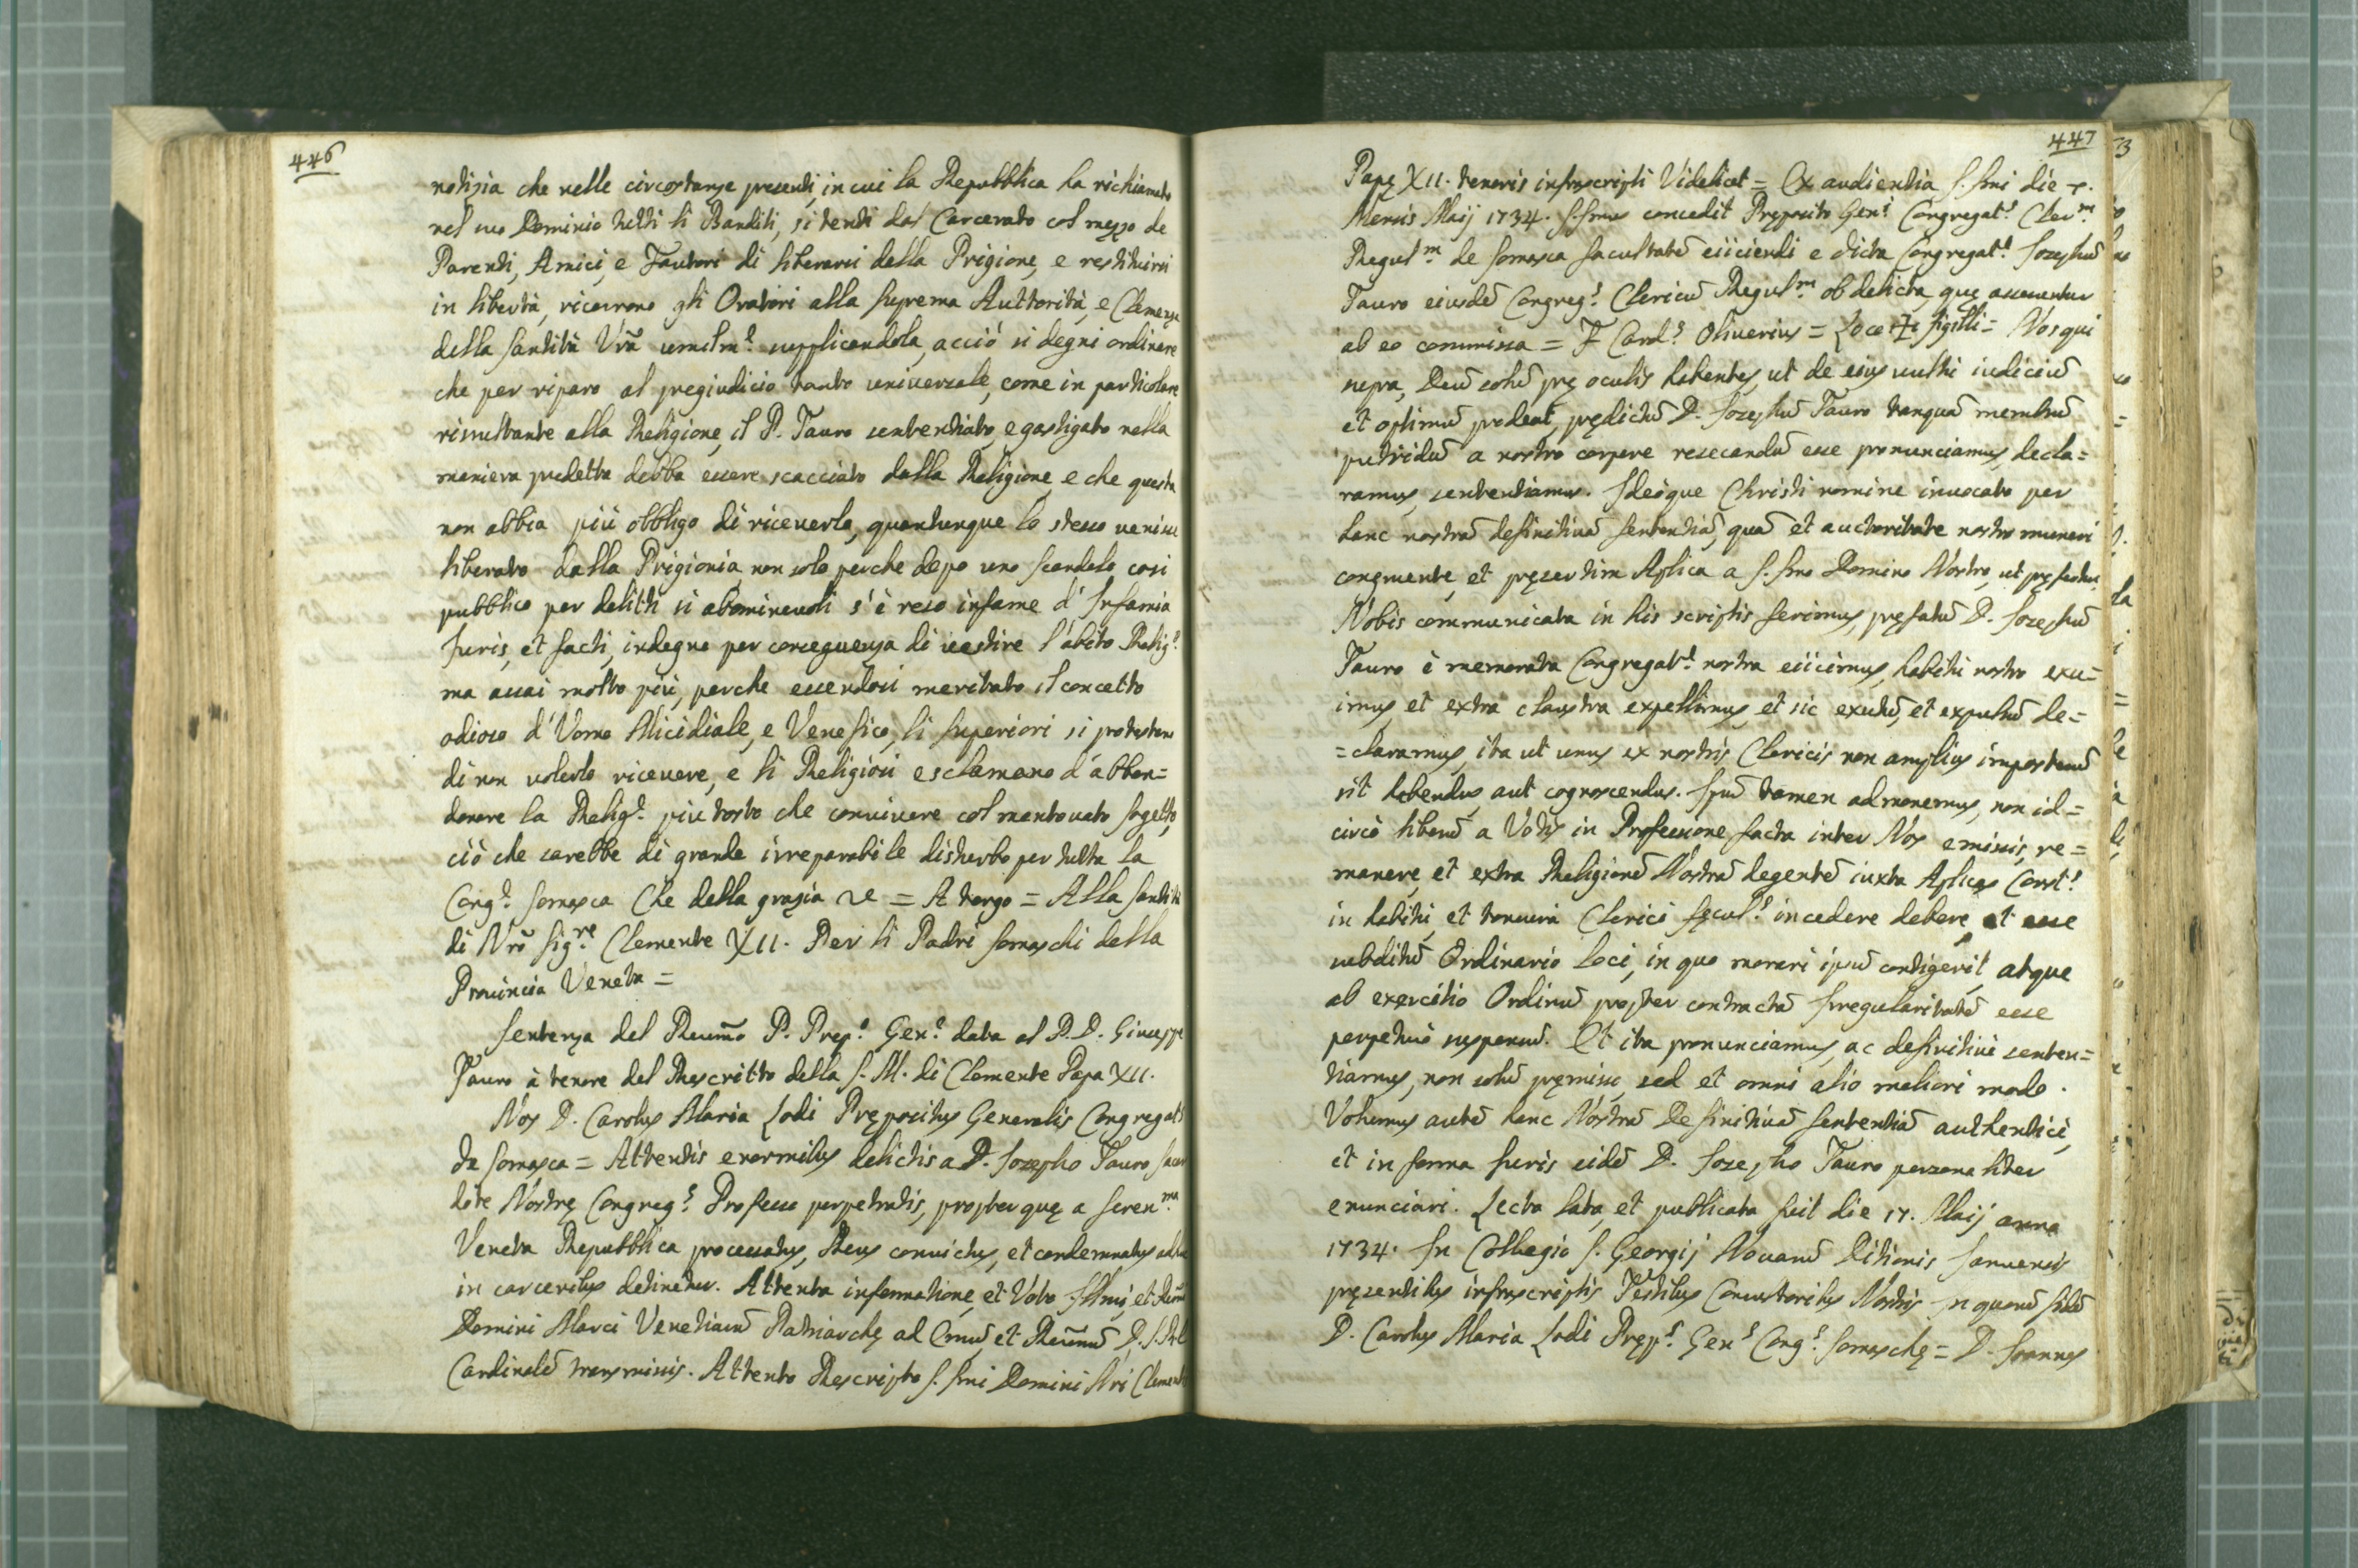 446
notizia che nelle circostanze presenti, in cui la Repubblica ha richiamato
nel suo Dominio tutti li Banditi, si tenti dal Carcerato col mezzo de
Parenti, Amici, e Fautori di liberarsi dalla Prigione, e restituirsi
in libertà, ricorrono gli Oratori alla suprema Auttorità, e Clemenza
della Santità Vrã umilm.e supplicandola, acciò si degni ordinare
che per riparo al pregiudicio tanto universale, come in particolare
risultante alla Religione, il P. Tauro sentenziato, e gastigato nella
maniera predetta debba essere scacciato dalla Religione, e che questa
non abbia più obbligo di riceverlo, quantunque lo stesso venisse
liberato dalla Prigionia, non solo perche dopo uno scandalo cosi
pubblico per delitti si abominevoli s'è reso infame d'Infamia
Juris, et facti, indegno per conseguenza di vestire l'abito Relig.o
ma assai molto più, perche essendosi meritato il concetto
odioso d'Uomo Micidiale, e Venefico, li superiori si protestano
di non volerlo ricevere, e li Religiosi esclamano d'abban=
donare la Relig.e piu tosto che convivere col mentovato sogetto,
ciò che sarebbe di grande irreparabile disturbo per tutta la
Cong.e Somasca Che della grazia = A tergo = Alla Santità
di Nrõ Sig.re Clemente XII. Per li Padri Somaschi della
Provincia Veneta =
Sentenza del Reum̃o P. Prep.o Gen.e data al P. D. Giuseppe
Tauro à tenore del Rescritto della S. M. di Clemente Papa XII.
Nos D. Carolus Maria Lodi Prępositus Generalis Congregat.s
de Somasca = Attentis enormibus delictis a D. Josepho Tauro sacer
dote Nostrę Congreg.s Professo perpetratis, propter quę a Seren.ma
Veneta Repubblica processatus, Reus convictus, et condemnatus adhuc
in carceribus detinetur. Attenta informatione, et Voto Illmi, et Reũm
Domini Marci Venetiarũ Patriarchę ad Emũ, et Reum̃ũ D. S. R. E.
Cardinalẽ transmissis. Attento Rescripto S.smi Domini Nri Clementis
447
Papę XII. tenoris infrascripti Videlicet = Ex audientia S.smi die 7.
Mensis Maij 1734. S.smus concedit Pręposito Gen.i Congregat.s Cler.m
Regul.m de Somasca facultatẽ eiiciendi e dicta Congregat.e Josephũ
Tauro eiusdẽ Congreg.s Clericũ Regul.m ob delicta, quę asseruntur
ab eo commissa = F Card.s Oliverius = Loco ✠ sigilli = Nos qui
supra, Deũ solũ prę oculis habentes, ut de eius vultu iudiciũ
et optimũ prodeat, prędictũ D. Josephũ Tauro tanquã membrũ
putridũ a nostro corpore resecandũ esse pronunciamus, decla=
ramus, sententiamus. Ideòque Christi nomine invocato per
hanc nostrã definitivã sententiã, quã et auctoritate nostro muneri
congruente, et pręsertim Aplica a S.smo Domino Nostro, ut pręfertur,
Nobis communicata in his scriptis ferimus, pręfatũ D. Josephũ
Tauro è memorata Congregat.e nostra eiicimus, habitu nostro exu=
imus, et extra claustra expellimus, et sic exutũ, et expulsũ de=
=claramus, ita ut unus ex nostris Clericis non amplius imposterũ
sit habendus, aut cognoscendus. Ipsũ tamen admonemus, non id=
circò liberũ a Votis in Professione facta inter Nos emissis, re=
manere, et extra Religionẽ Nostrã degentẽ iuxta Aplicas Const.s
in habitu, et tonsura Clerici sęcul.s incedere debere, et esse
subditũ Ordinario Loci, in quo morari ipsũ contigerit, atque
ab exercitio Ordinũ propter contractã Irregularitatẽ esse
perpetuò suspensũ. Et ita pronunciamus, ac definitivè senten=
tiamus, non solũ pręmisso, sed et omni alio meliori modo.
Volumus autẽ hanc Nostrã Definitivã Sententiã authenticè,
et in forma Juris eidẽ D. Josepho Tauro personaliter
enunciari. Lecta, lata, et pubblicata fuit die 17. Maij anno
1734. In Collegio S. Georgij Novarũ Ditionis Januensis
pręsentibus infrascriptis Testibus Consultoribus Nostris In quorũ fidẽ
D. Carolus Maria Lodi Pręp.s Gen.s Cong.s Somaschę = D. Joannes